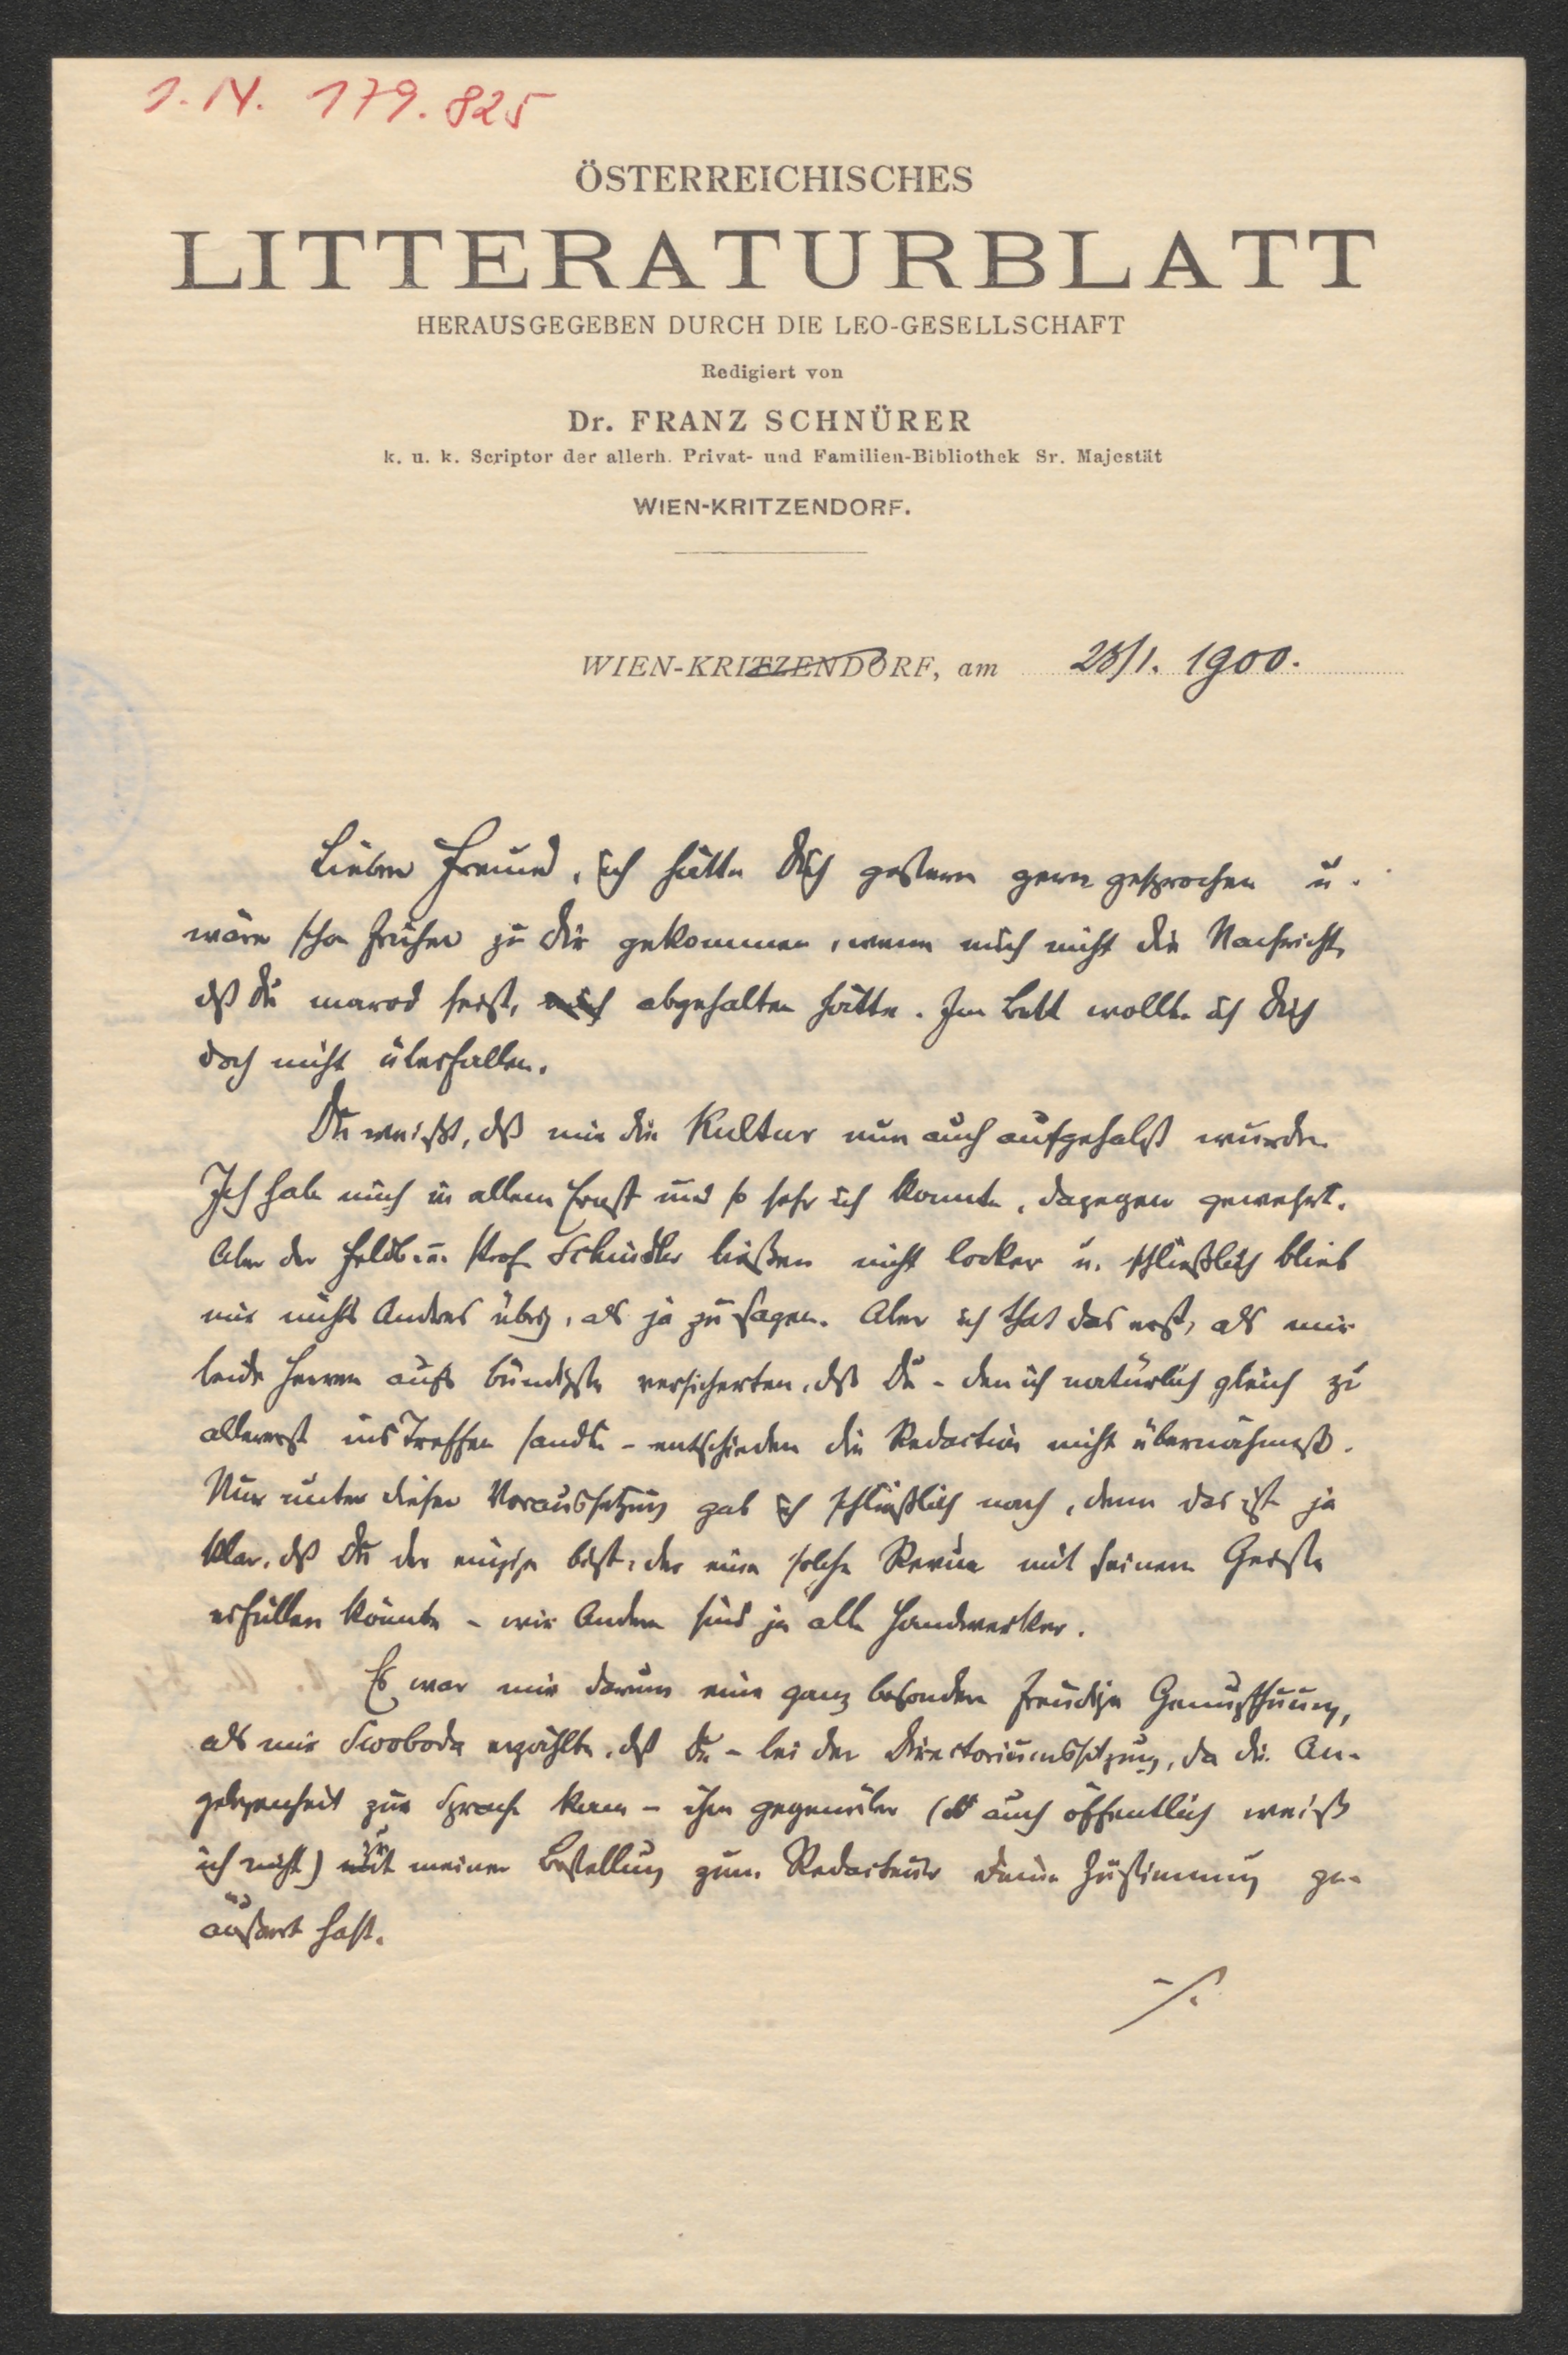 I. N. 179.825
ÖSTERREICHISCHES
LITTERATURBLATT
HERAUSGEGEBEN DURCH DIE LEO-GESELLSCHAFT
Redigiert von
Dr. FRANZ SCHNÜRER
k. u. k. Scriptor der allerh. Privat- und Familien-Bibliothek Sr. Majestät
WIEN-KRITZENDORF.
WIEN-KRITZENDORF, am 28/1. 1900.
Lieber Freund, ich hätte Dich gestern gern gesprochen u.
wäre schon früher zu Dir gekommen, wenn mich nicht die Nachricht,
dß Du marod seist, mich abgehalten hätte. Im Bett wollte ich Dich
doch nicht überfallen.
Du weißt, dß mir die Kultur nun auch aufgehalst wurde.
Ich habe mich in allem Ernst und so sehr ich konnte, dagegen gewehrt.
Aber der u. Prof. Schindler ließen nicht locker u. schließlich blieb
mir nichts Andres übrig, als ja zu sagen. Aber ich that das erst, als mir
beide Herren aufs bündigste versicherten, dß Du - den ich natürlich gleich zu
allererst ins Treffen sandte - entschieden die Redaction nicht übernähmest.
Nur unter dieser Voraussetzung gab ich schließlich nach, denn das ist ja
klar, dß Du der einzige bist, der eine solche Revue mit seinem Geiste
erfüllen könnte - wir Andern sind ja alle Handwerker.
Es war mir darum eine ganz besondere freudige Genugthuung,
als mir Swoboda erzählte, dß Du - bei der Directoriumssitzung, da die An-
gelegenheit zur Sprache kam - ihm gegenüber (ob auch öffentlich weiß
ich nicht) zu meiner Bestellung zum Redacteur Deine Zustimmung ge-
äußert hast.
./.